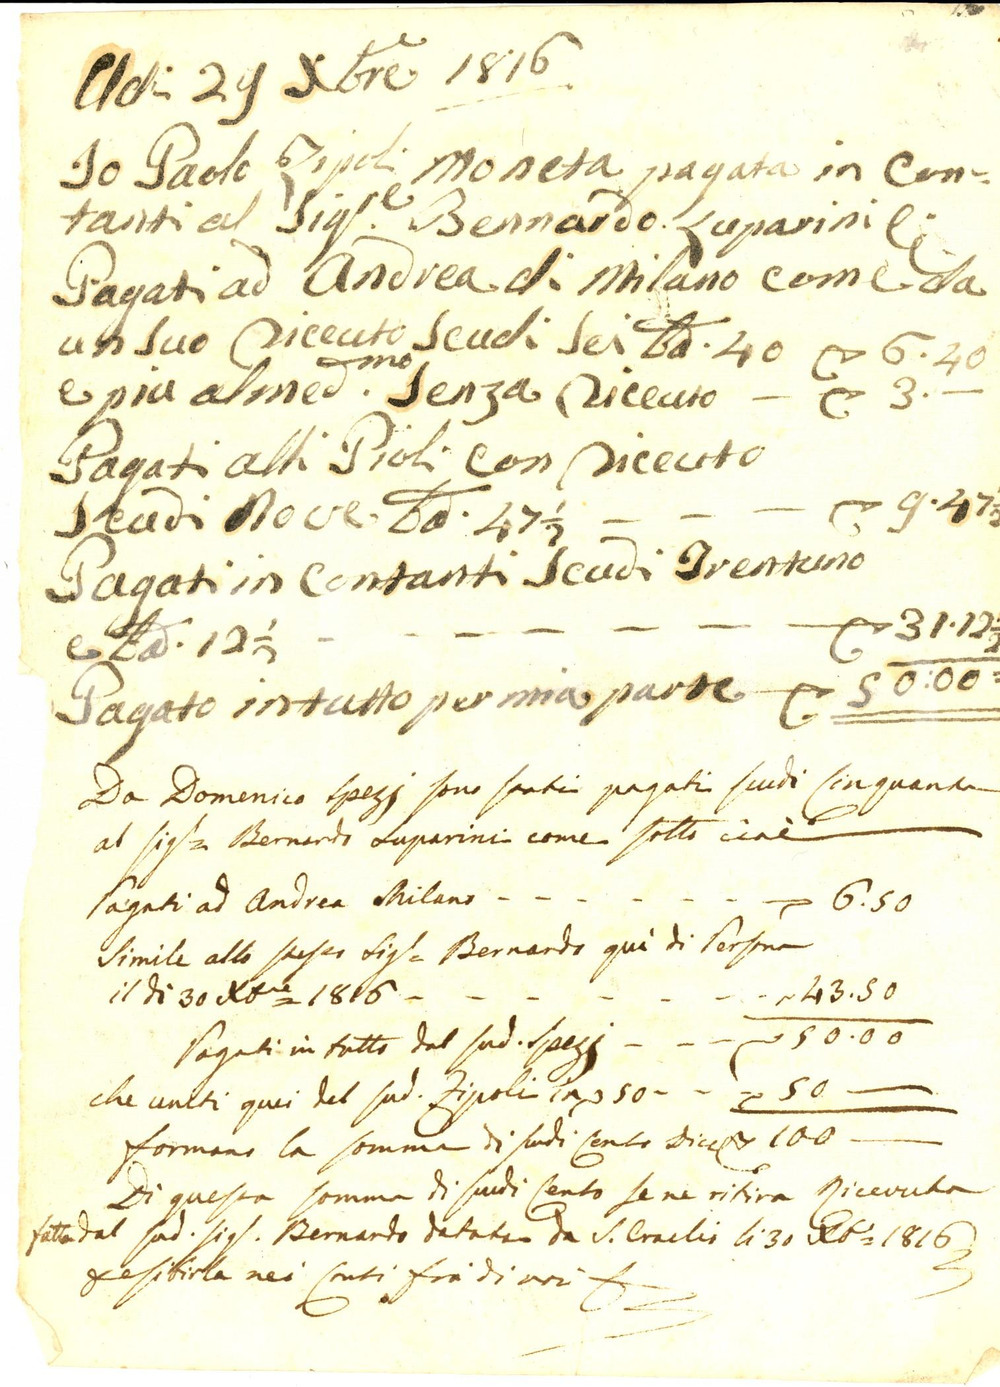 Adi 29 Xbre 1816
Io Paolo Zipoli Moneta pagata in Con-
tanti al Sigre Bernardo Luparini e
Pagati ad Andrea di Milano come da
un suo Riceuto Scudi Sei bd. 40 6.40
e piu al med.mo Senza Riceuto — 3.—
Pagati alli Pioli con Riceuto
Scudi Nove bd. 47½ — — — 9.47½
Pagati in Contanti Scudi Trentuno
e bd. 12½ - - — — — — — 31.12½
Pagato in tutto per mia parte — 50:00=
Da Domenico Spezj sono stati pagati scudi Cinquanta
al sigr= Bernardo Luparini come sotto cioè
Pagati ad Andrea Milano - - - - - - - - 6.50
Simile allo stesso Sigr= Bernardo qui di Persona
il di 30 Xbre= 1816 - - - - - - - - 43.50
Pagati in tutto dal sud. Spezj - - - 50.00
che uniti quei del sud. Zipoli in 50 - - 50 —
formano la somma di scudi Cento Dico 100 —
Di questa somma di scudi Cento se ne ritira Ricevuta
fatta dal sud. sigr. Bernardo datata da S. Eraclio li 30 Xbr= 1816
x esibirla nei Conti frà di noi